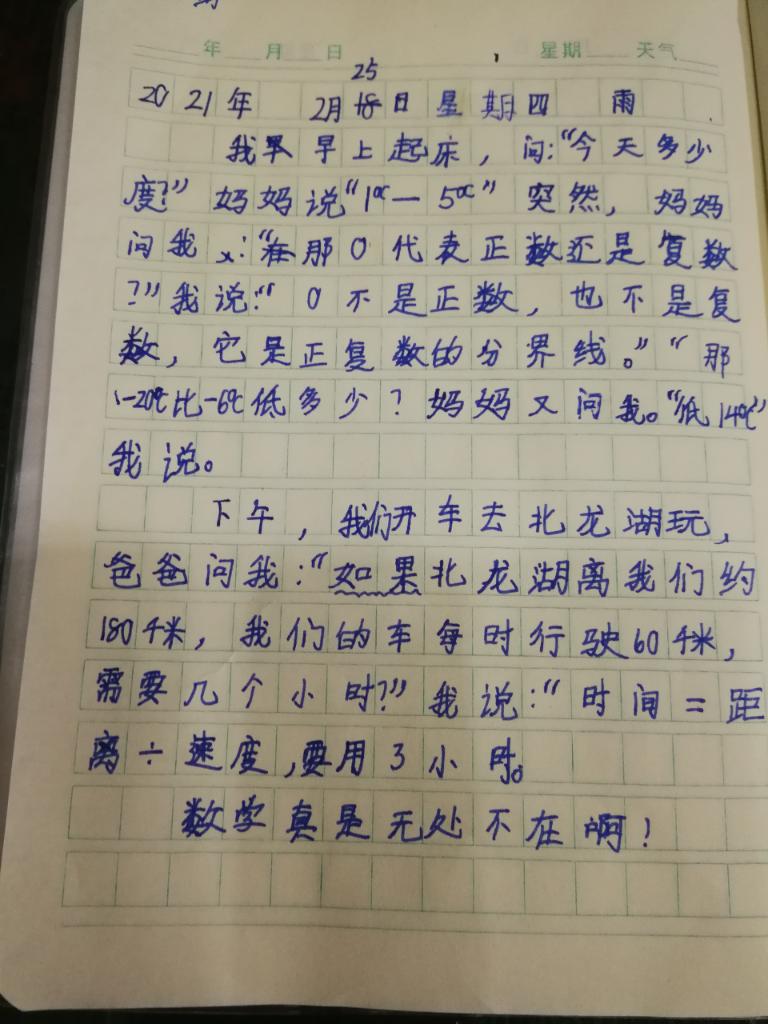 年 月 日 星期 天气
25
2021年 2月18日 星期四 雨
我早早上起床，问：“今天多少
度？”妈妈说“1℃—5℃”突然，妈妈
问我：“在那0代表正数还是复数
？”我说：“0不是正数，也不是复
数，它是正复数的分界线。”“那
-20℃比-6℃低多少？妈妈又问我。“低14℃”
我说。
下午，我们开车去北龙湖玩，
爸爸问我：“如果北龙湖离我们约
180千米，我们的车每时行驶60千米，
需要几个小时？”我说：“时间＝距
离÷速度，要用3小时。
数学真是无处不在啊！